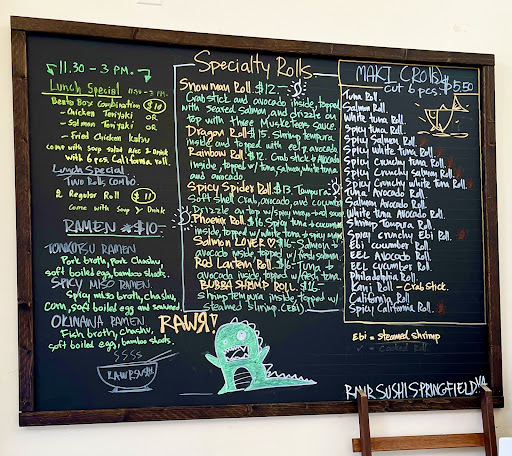 11.30 - 3 PM.
Lunch Special 11:30 - 3 PM.
Bento Box Combination $10
- Chicken Teriyaki OR
- Salmon Teriyaki OR
- Fried Chicken Katsu
come with soup salad rice & Drink
with 6 pcs. California roll.
Lunch Special
Two Rolls Combo.
2 Regular Roll $11
Come with soup & Drink
RAMEN $10
TONKOTSU RAMEN
Pork broth, Pork Chashu,
soft boiled egg, bamboo shoots.
SPICY MISO RAMEN
Spicy miso broth, chashu,
corn, soft boiled egg and seaweed
OKINAWA RAMEN
Fish broth, Chashu,
soft boiled egg, bamboo shoots.
RAWRSUSHI
RAWR!
Specialty Rolls
Snowman Roll $12 -
Crabstick and avocado inside, topped
with seared salmon, and drizzle on
top with three Musketeers sauce.
Dragon Roll $15. Shrimp tempura
inside and topped with eel, avocado
Rainbow Roll $12. Crab stick & Avocado
inside, topped w/ tuna, salmon, white tuna
and avocado.
Spicy Spider Roll $13. Tempura
Soft shell crab, avocado, and cucumber
Drizzle on top w/ spicy mayo + eel sauce
Phoenix Roll $16. Spicy tuna + cucumber
inside, topped w/ white tuna + spicy mayo
Salmon LOVER $16 - Salmon +
avocado inside topped w/ salmon
Red Lantern Roll $16 - Tuna +
avocado inside topped w/ fresh tuna.
BUBBA SHRIMP ROLL $16 -
shrimp tempura inside, topped w/
steamed shrimp. (EBI)
MAKI (ROLL) $5.50
cut 6 pcs.
Tuna Roll
Salmon Roll.
White tuna Roll.
Spicy tuna Roll.
Spicy Salmon Roll.
Spicy white tuna Roll.
Spicy Crunchy tuna Roll.
Spicy Crunchy Salmon Roll.
Spicy Crunchy White tuna Roll.
Tuna Avocado Roll.
Salmon Avocado Roll.
White tuna Avocado Roll.
Shrimp Tempura Roll.
Spicy crunchy Ebi Roll.
Ebi cucumber Roll.
EEL Avocado Roll
EEL cucumber Roll.
Philadelphia Roll.
Kani Roll - Crab Stick.
California Roll
Spicy California Roll.
Ebi = steamed shrimp
= Cooked Roll
RAWR SUSHI SPRINGFIELD, VA